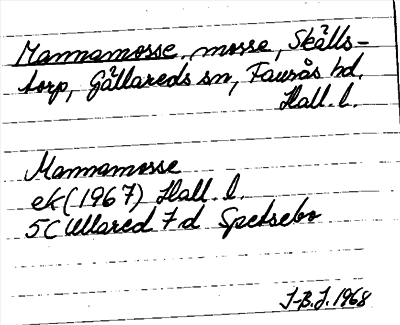 Mannamosse, mosse, Skälls-
torp, Gällareds sn, Faurås hd,
Hall. l.
Mannamosse
ek (1967) Hall. l.
5C Ullared 7 d Spetsebo
J-B.J. 1968